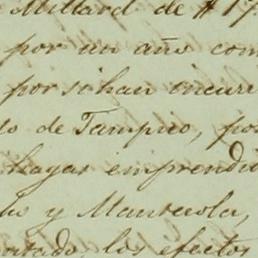 Millard de $17.
por un año con
por si han ocurr
de Tampico, por
hagas emprendio
y Manterola,
los efectos